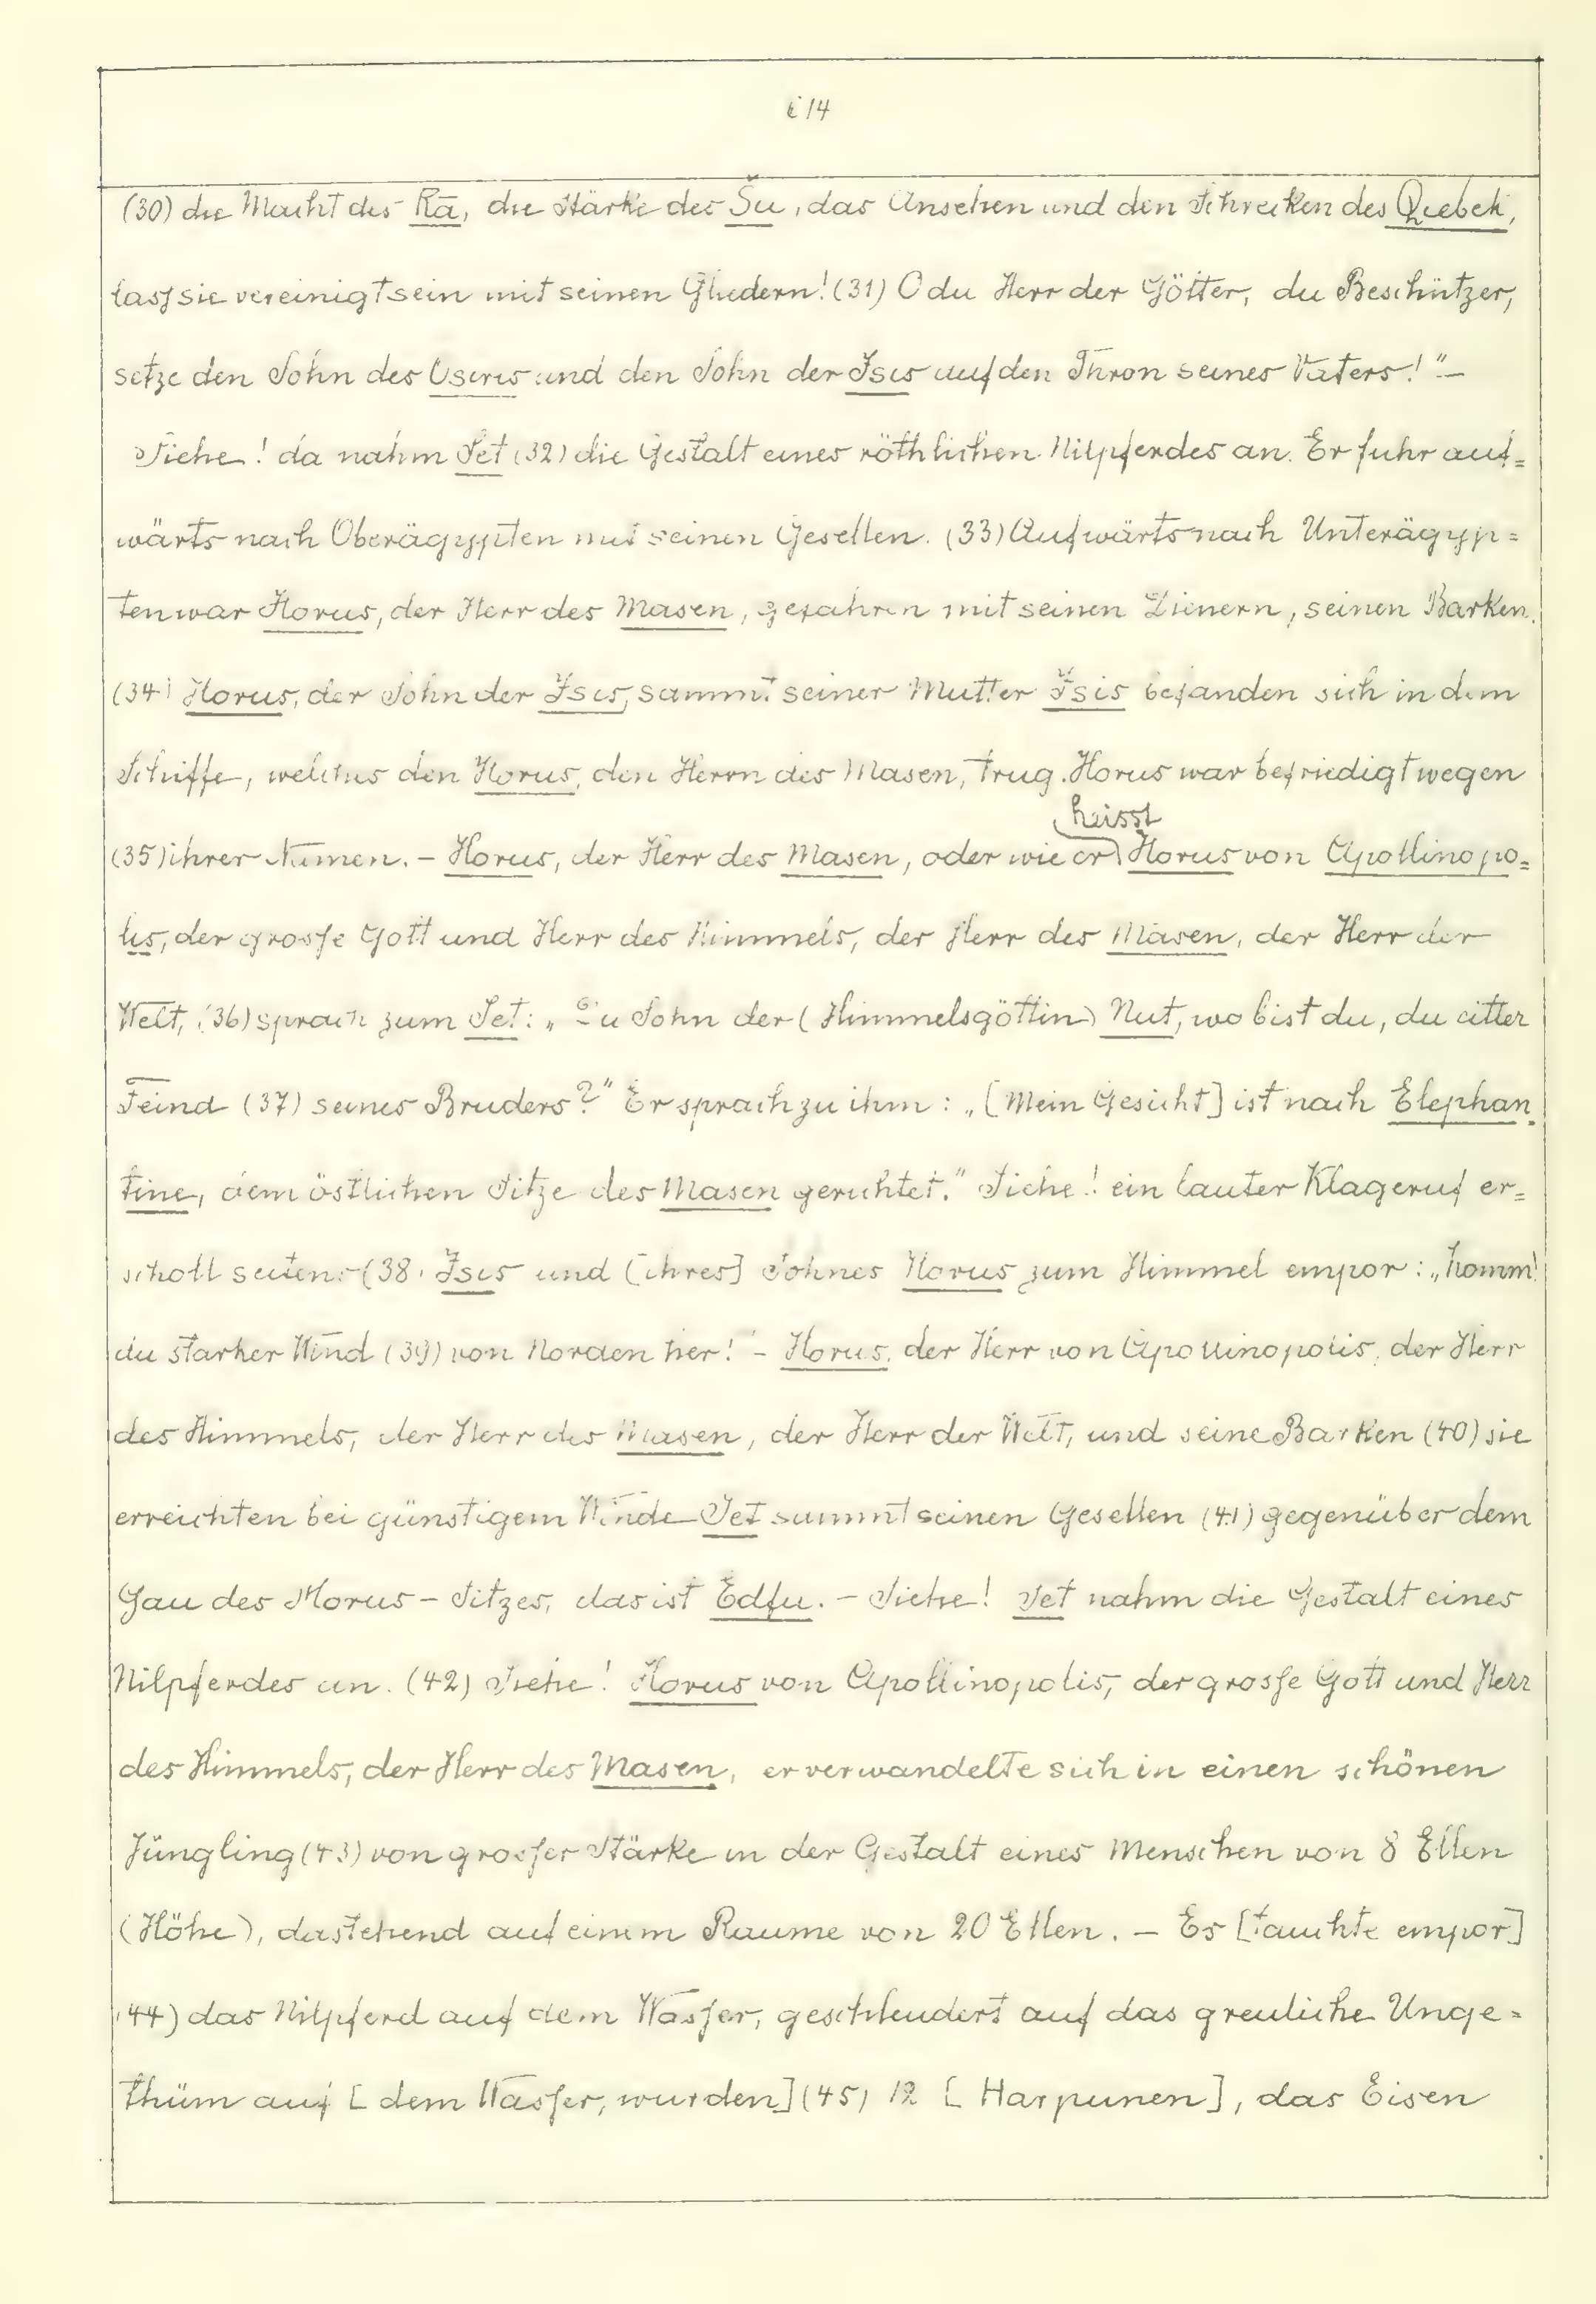 614
(30) die Macht des Rā, die Stärke des Šu, das Ansehen und den Schrecken des Quebek,
lass sie vereinigt sein mit seinen Gliedern! (31) O du Herr der Götter, du Beschützer,
setze den Sohn des Usiris und den Sohn der Isis auf den Thron seines Vaters!" –
Siehe! da nahm Set (32) die Gestalt eines röthlichen Nilpferdes an. Er fuhr auf=
wärts nach Oberägypten mit seinen Gesellen. (33) Aufwärts nach Unterägyp=
ten war Horus, der Herr des Masen, gefahren mit seinen Dienern, seinen Barken.
(34) Horus, der Sohn der Isis, sammt seiner Mutter Isis befanden sich in dem
Schiffe, welches den Horus, den Herrn des Masen, trug. Horus war befriedigt wegen
(35) ihrer Namen. – Horus, der Herr des Masen, oder wie er heisst Horus von Apollinopo=
lis, der grosse Gott und Herr des Himmels, der Herr des Masen, der Herr der
Welt, (36) sprach zum Set: „Du Sohn der (Himmelsgöttin) Nut, wo bist du, du alter
Feind (37) seines Bruders?" Er sprach zu ihm: „[Mein Gesicht] ist nach Elephan=
tine, dem östlichen Sitze des Masen gerichtet." Siehe! ein lauter Klageruf er=
scholl seitens (38) Isis und [ihres] Sohnes Horus zum Himmel empor: „komm!
du starker Wind (39) von Norden her!" – Horus, der Herr von Apollinopolis, der Herr
des Himmels, der Herr des Masen, der Herr der Welt, und seine Barken (40) sie
erreichten bei günstigem Winde Set sammt seinen Gesellen (41) gegenüber dem
Gau des Horus-Sitzes, das ist Edfu. – Siehe! Set nahm die Gestalt eines
Nilpferdes an. (42) Siehe! Horus von Apollinopolis, der grosse Gott und Herr
des Himmels, der Herr des Masen, er verwandelte sich in einen schönen
Jüngling (43) von grosser Stärke in der Gestalt eines Menschen von 8 Ellen
(Höhe), dastehend auf einem Raume von 20 Ellen. – Es [tauchte empor]
(44) das Nilpferd auf dem Wasser, geschleudert auf das greuliche Unge=
thüm auf [dem Wasser, wurden] (45) 12 [Harpunen], das Eisen